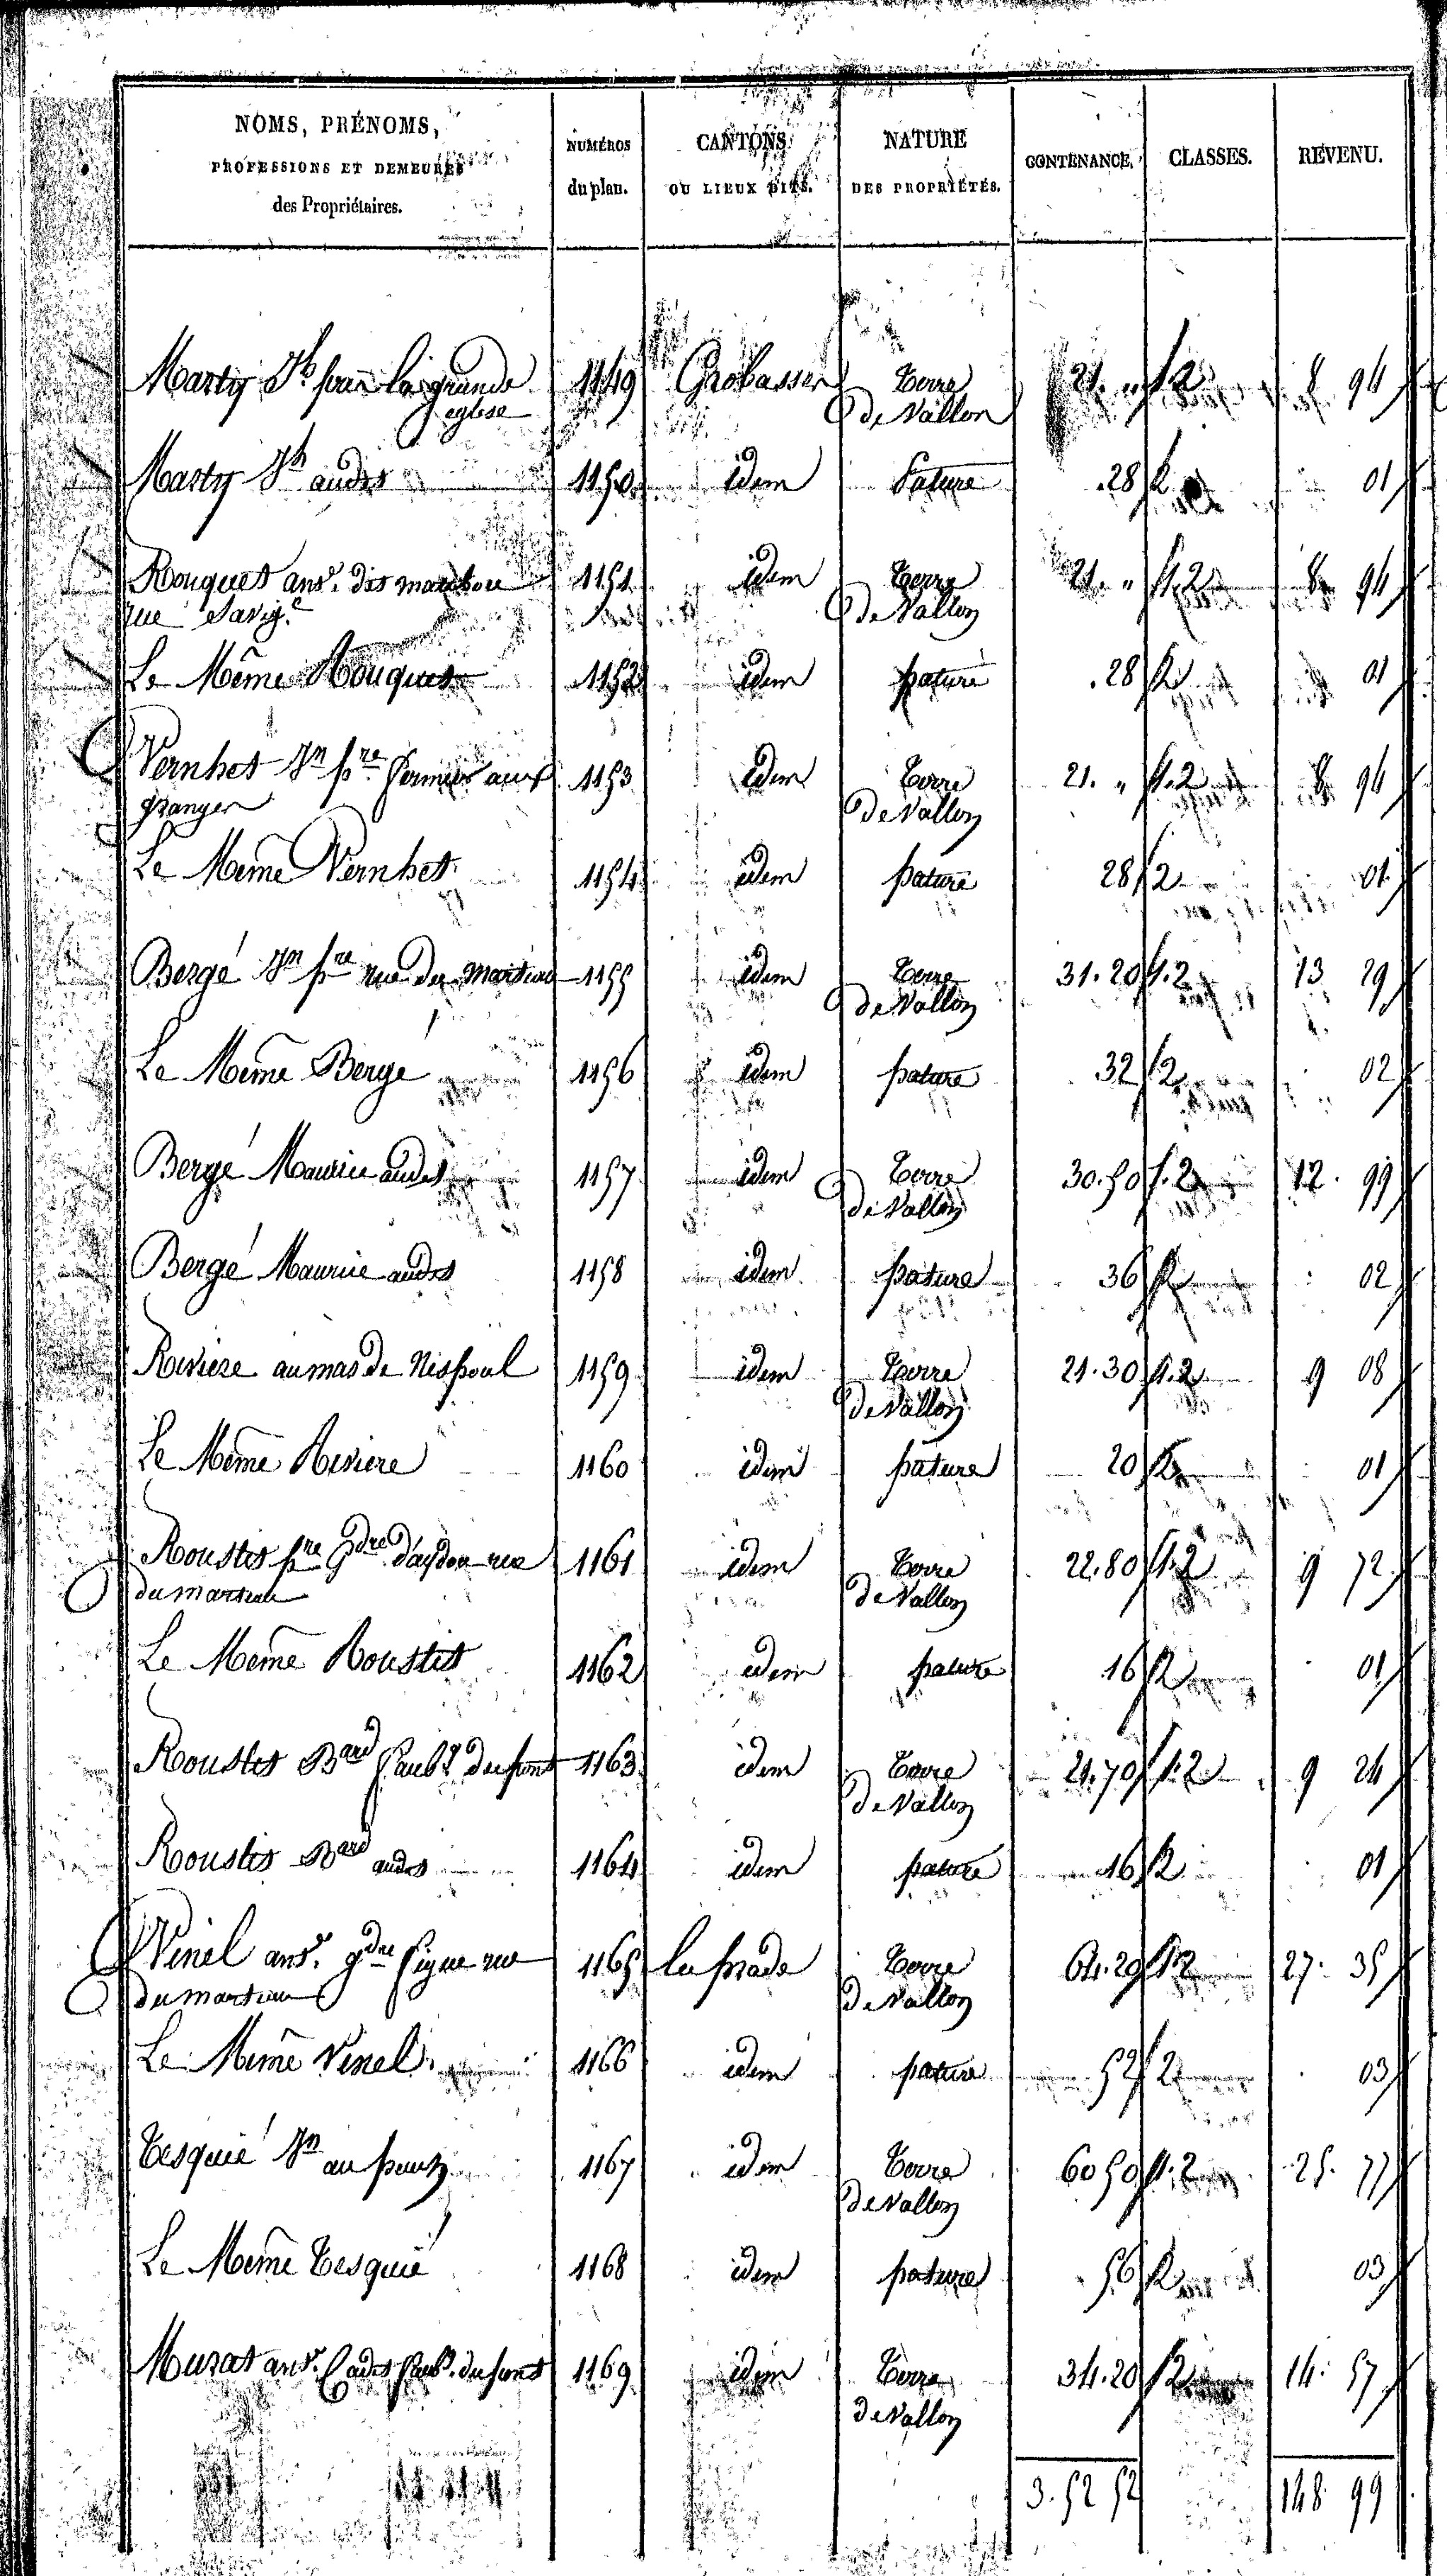 NOMS, PRÉNOMS, PROFESSIONS ET DEMEURES des Propriétaires. NUMÉROS du plan. CANTONS OU LIEUX DITS. NATURE DES PROPRIÉTÉS. CONTENANCE. CLASSES. REVENU.
Marty Jh la grande 1149 Grobasses Terre 21. " 1.2 8 94
eglise de Vallon
Marty Jh audit 1150 idem Pature 28 2 01
Rouquet anᵗ. dit 1151 idem Terre 21. " 1.2 8 94
rue de Vallon
Le Même Rouquet 1152 idem pature 28 2 01
Vernhet Jn pre fermier aux 1153 idem Terre 21. " 1.2 8 94
granges de Vallon
Le Même Vernhet 1154 idem pature 28 2 01
Bergé Jn pre rue du 1155 idem Terre 31.20 1.2 13 29
de Vallon
Le Même Bergé 1156 idem pature 32 2 02
Bergé Maurice audit 1157 idem Terre 30.50 1.2 12. 99
de Vallon
Bergé Maurice audit 1158 idem pature 36 2 02
Riviere au mas de Nespoul 1159 idem Terre 21.30 1.2 9 08
de Vallon
Le Même Riviere 1160 idem pature 20 2 01
Roustit pre gdre rue 1161 idem Terre 22.80 1.2 9 72
du de Vallon
Le Même Roustit 1162 idem pature 16 2 01
Roustit Bard faubg du pont 1163 idem Terre 21.70 1.2 9 24
de Vallon
Roustit Bard audit 1164 idem pature 16 2 01
Vinel anᵗ. gdre rue 1165 la prade Terre 64.20 1.2 27. 35
du de Vallon
Le Même Vinel 1166 idem pature 52 2 03
Tesquié Jn au 1167 idem Terre 60 50 1.2 25. 77
de Vallon
Le Même Tesquié 1168 idem pature 56 2 03
Murat anᵗ. Cadet faubg. du pont 1169 idem Terre 34.20 1.2 14. 57
de Vallon
3. 52 52 148 99